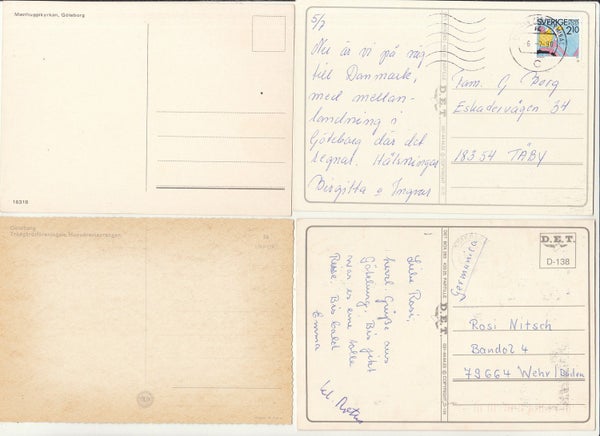 Masthuggskyrkan, Göteborg
16318
5/7
Nu är vi på väg
till Danmark,
med mellan-
landning i
Göteborg där det
regnar. Hälsningar
Birgitta o Ingvar
SVERIGE
210
Fam. G Berg
Eskadervägen 34
183 54 TÄBY
D.E.T.
Göteborg
Trädgårdsföreningen, Huvudrestaurangen
Liebe Rosi,
herzl. Grüße aus
Göteborg. Bis jetzt
war es eine tolle
Reise. Bis bald
Emma
Germanica
D.E.T.
D-138
D.E.T.
Rosi Nitsch
79664 Wehr/Baden